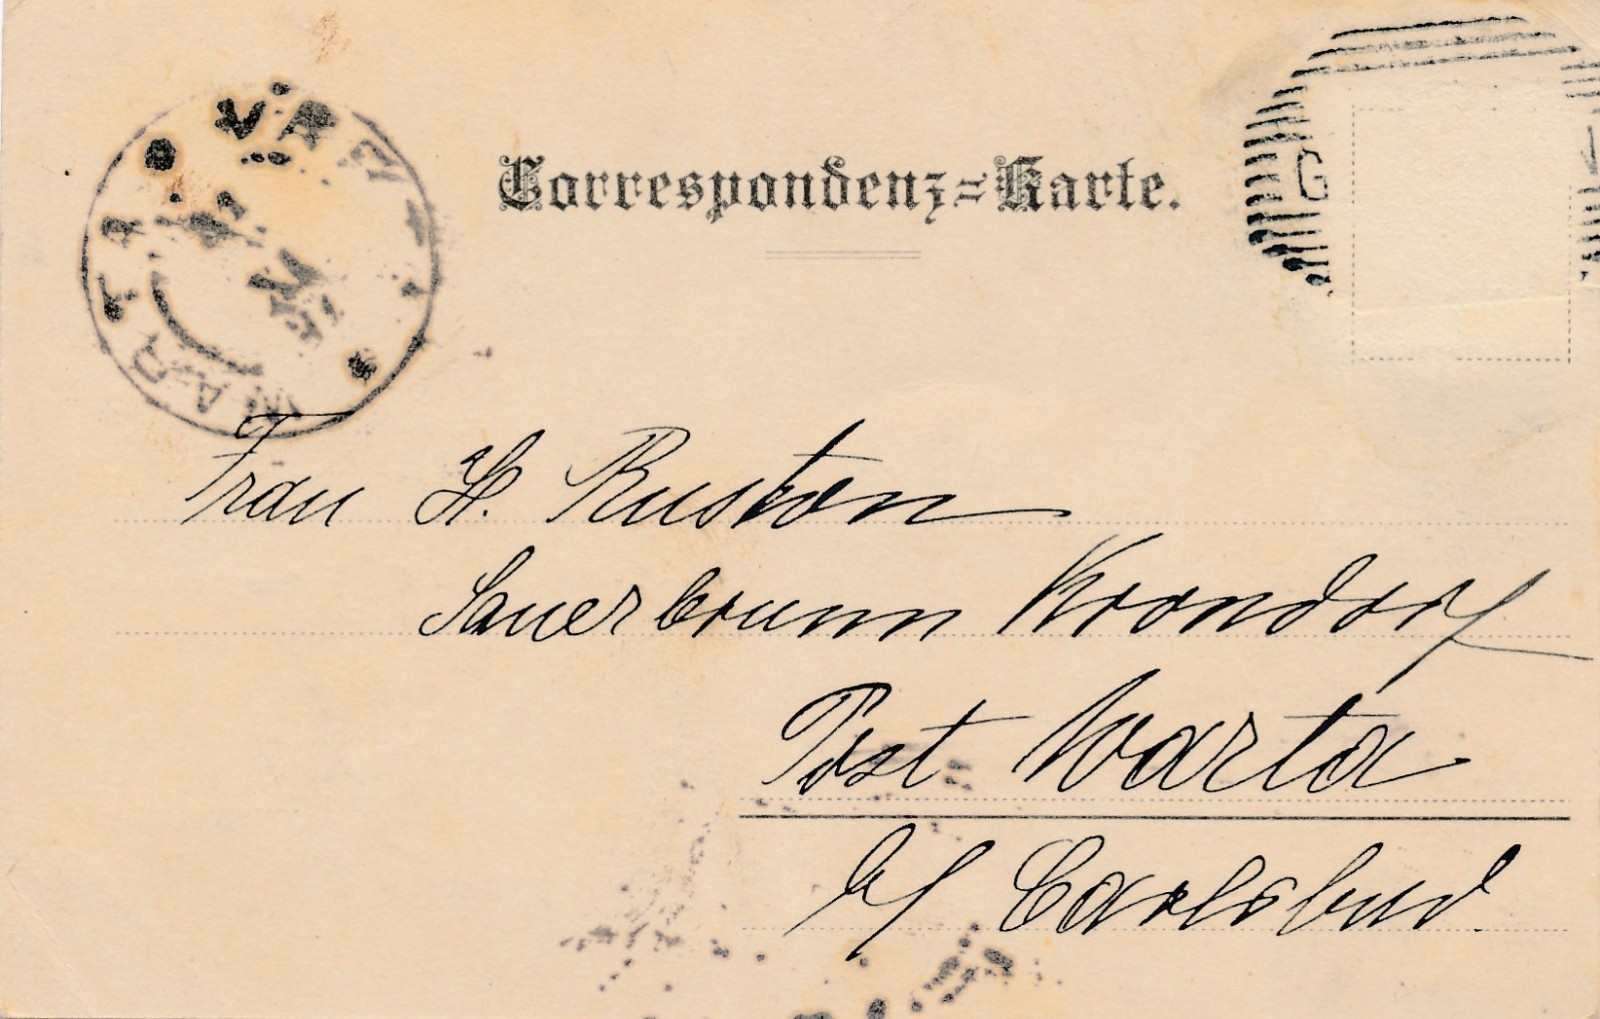 Correspondenz=Karte.
G
Frau H. Ruston
Sauerbrunn Krondorf
Post Warta
b/ Carlsbad